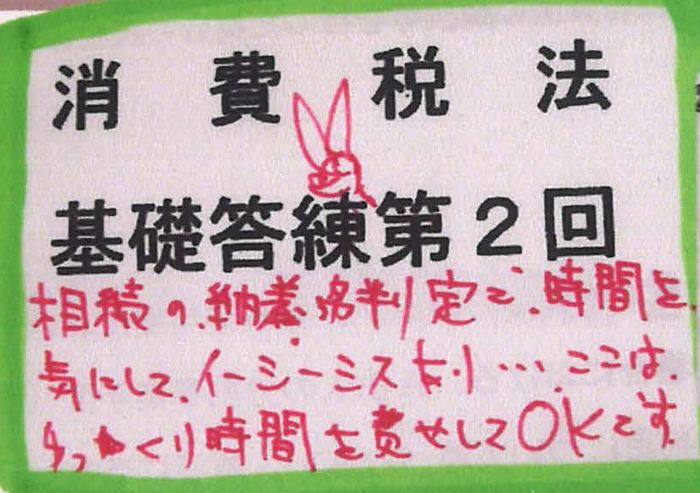 消費税法
基礎答練第2回
相続の、納義務判定で、時間を、
気にして、イージーミスあり…、ここは、
ゆっくり時間を費せしてOKです。